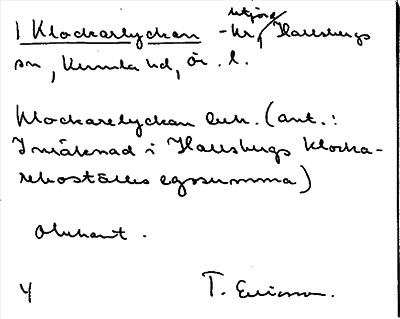 1 Klockarlyckan - kr, utjord Hallsbergs
sn, Kumla hd, Ör. l.
Klockarelyckan luk. (ant.:
Inräknad i Hallsbergs klocka-
reboställes egosumma)
Obekant.
4 T. Ericsson.